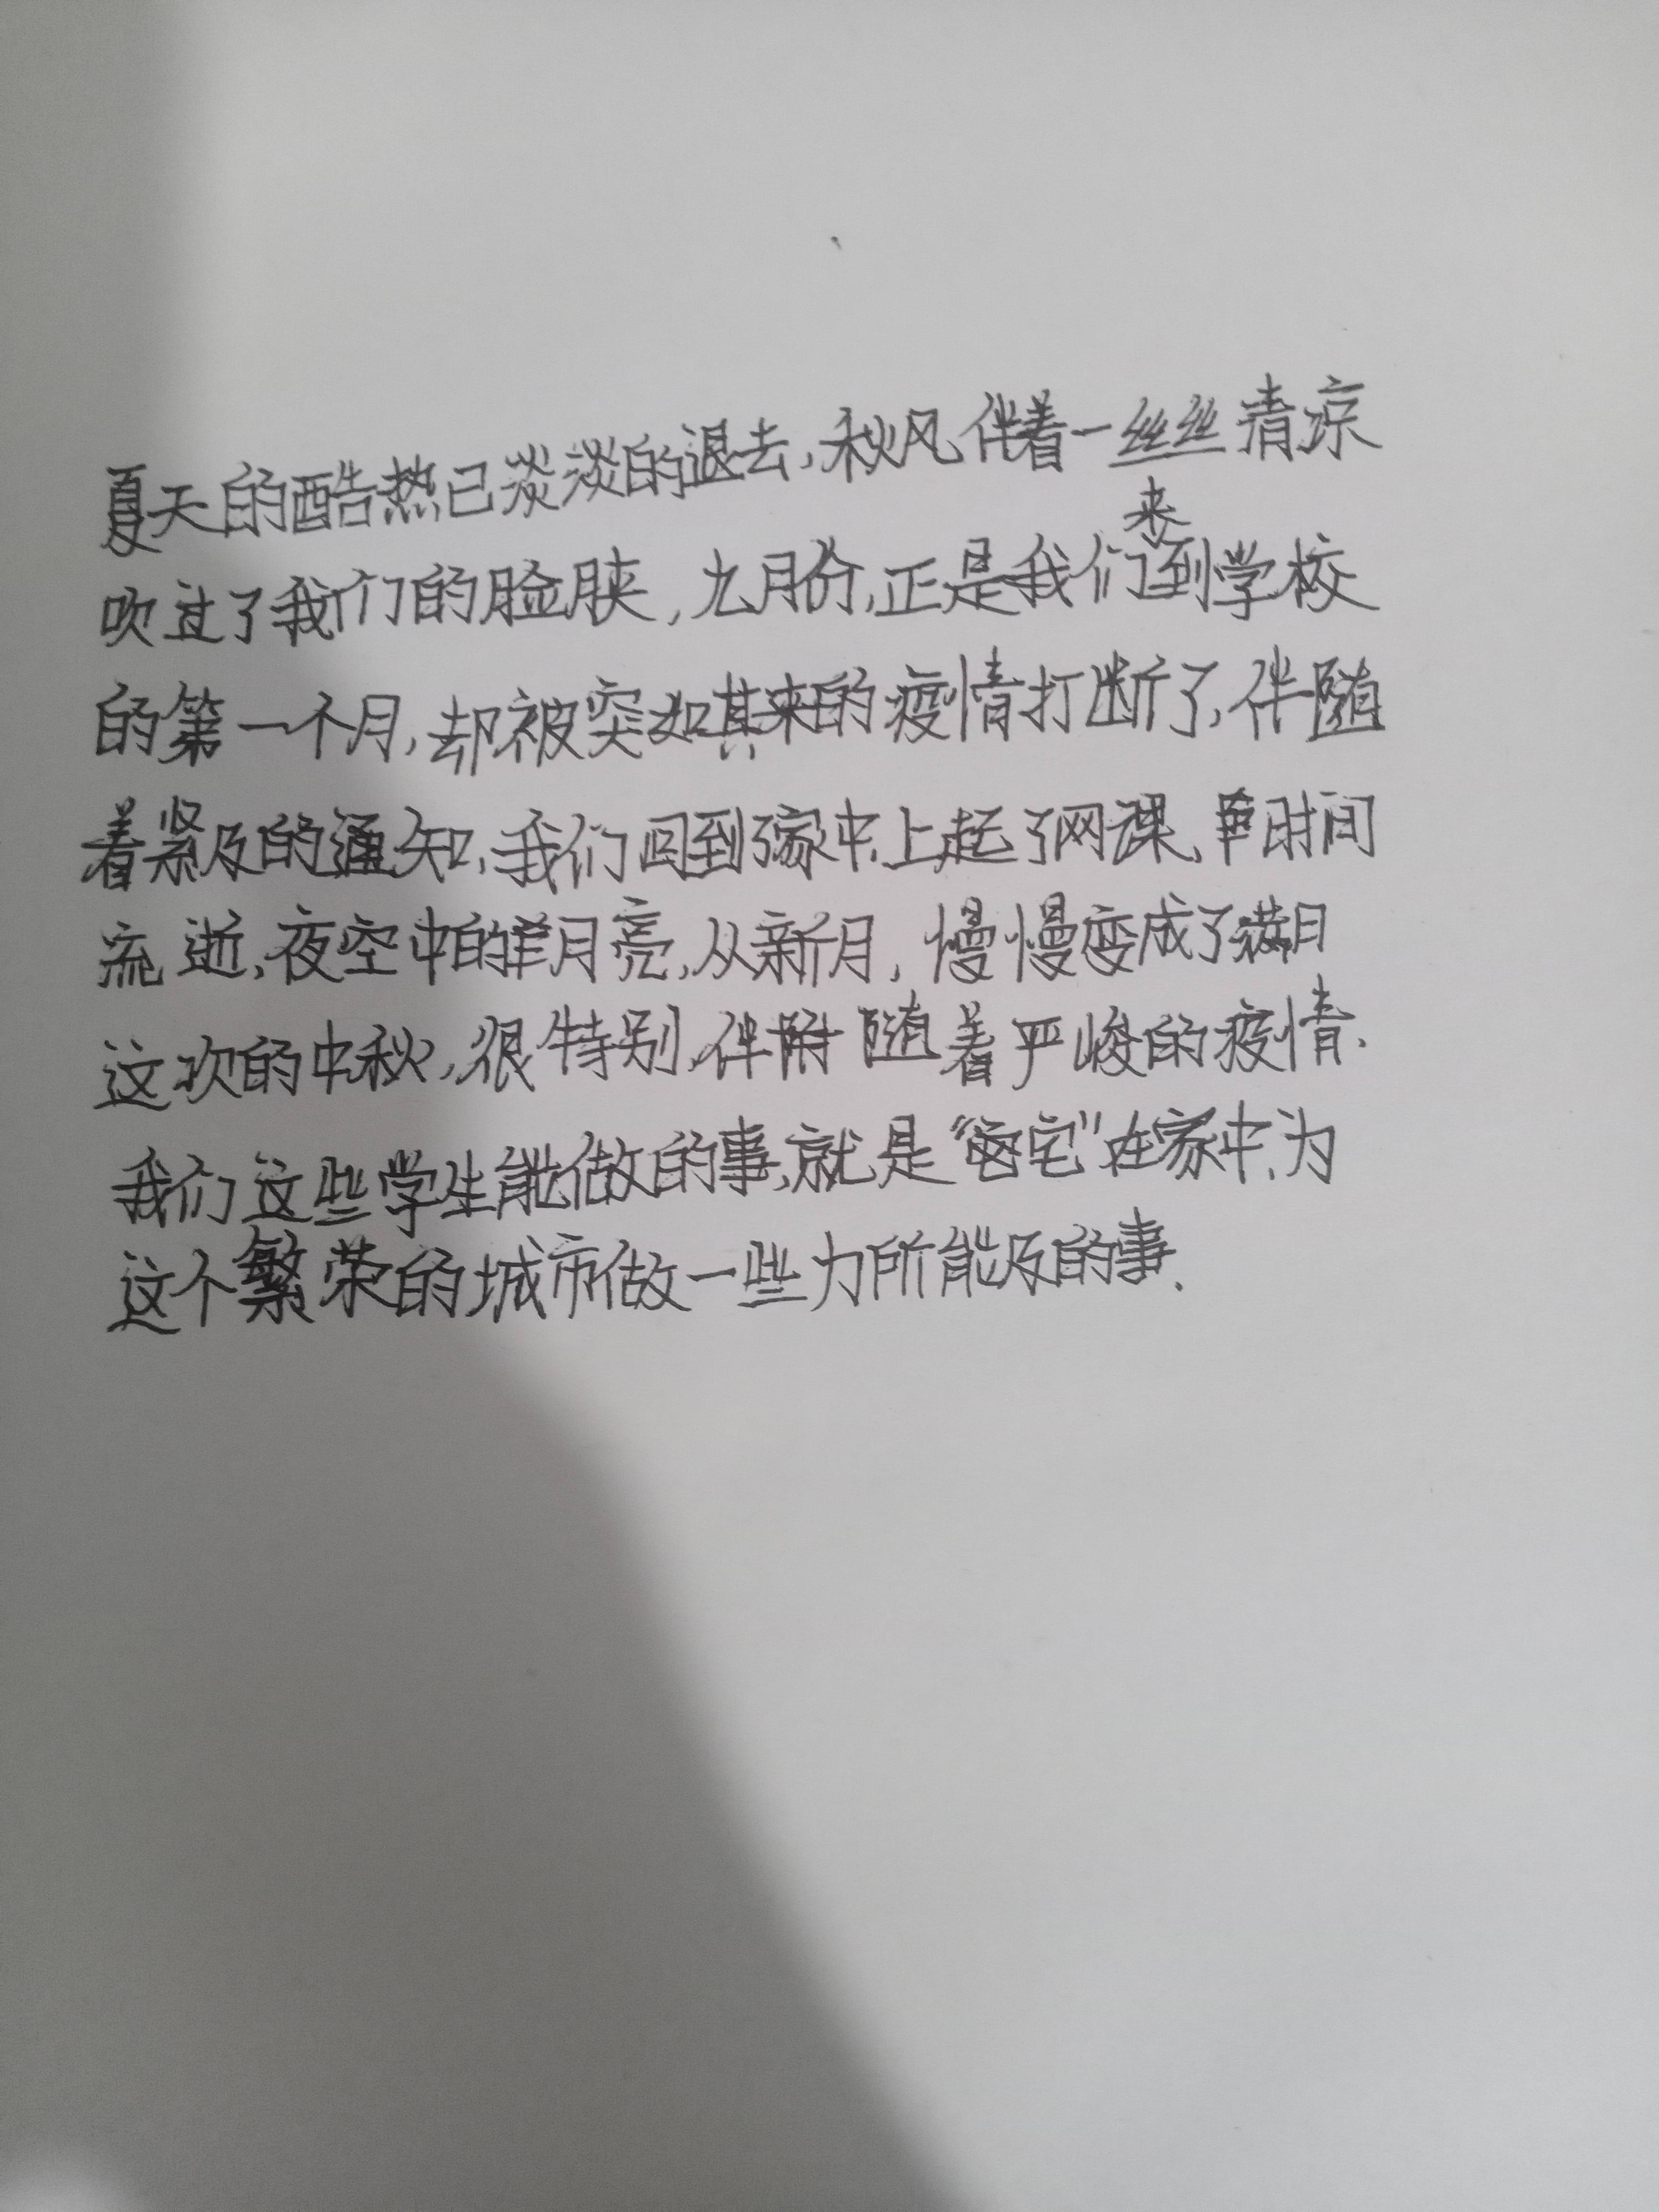 夏天的酷热已淡淡的退去,秋风伴着一丝丝清凉
吹过了我们的脸颊,九月份,正是我们来到学校
的第一个月,却被突如其来的疫情打断了,伴随
着紧及的通知,我们回到家中,上起了网课,时间
流逝,夜空中的月亮,从新月,慢慢变成了满月
这次的中秋,很特别,伴随着严峻的疫情.
我们这些学生能做的事,就是“宅”在家中,为
这个繁荣的城市做一些力所能及的事.